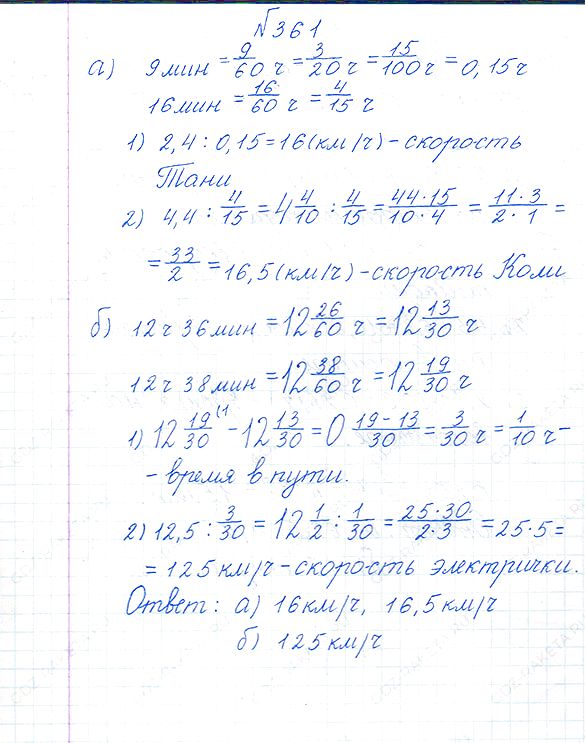 №361
а) 9 мин = 9/60 ч = 3/20 ч = 15/100 ч = 0,15 ч
16 мин = 16/60 ч = 4/15 ч
1) 2,4 : 0,15 = 16 (км/ч) - скорость
Тани
2) 4,4 : 4/15 = 4 4/10 : 4/15 = 44·15/10·4 = 11·3/2·1 =
= 33/2 = 16,5 (км/ч) - скорость Коли
б) 12 ч 36 мин = 12 26/60 ч = 12 13/30 ч
12 ч 38 мин = 12 38/60 ч = 12 19/30 ч
1) 12 19/30 (1 - 12 13/30 = 0 19-13/30 = 3/30 ч = 1/10 ч -
- время в пути.
2) 12,5 : 3/30 = 12 1/2 : 1/30 = 25·30/2·3 = 25·5 =
= 125 км/ч - скорость электрички.
Ответ: а) 16 км/ч, 16,5 км/ч
б) 125 км/ч